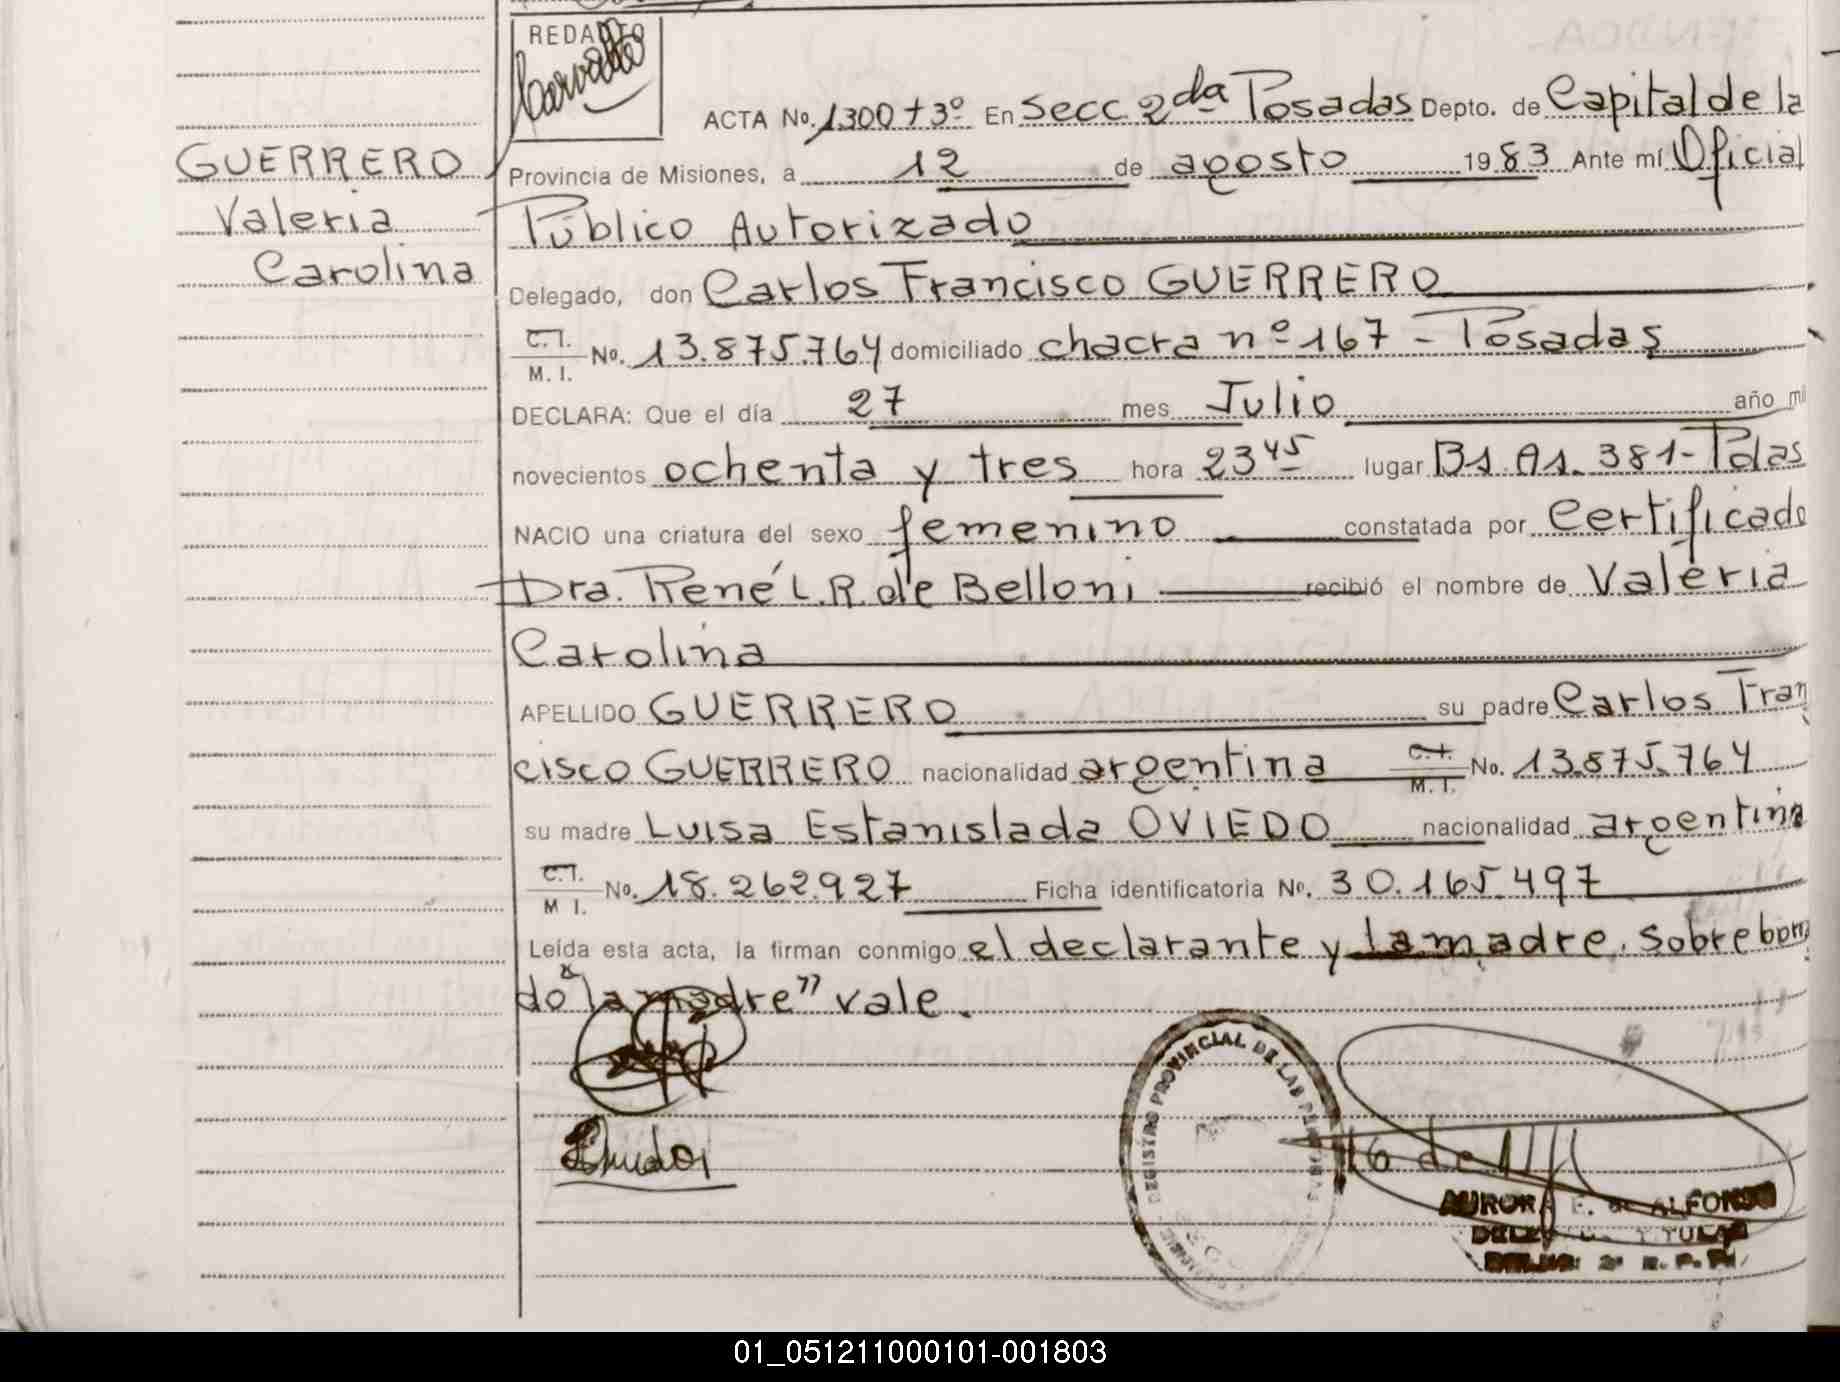 REDACTO
ACTA No. 1300 T 3º En Secc 2da Posadas Depto. de Capital de la
GUERRERO
Valeria
Carolina
Provincia de Misiones, a 12 de agosto 1983 Ante mí Oficial
Público Autorizado
Delegado, don Carlos Francisco GUERRERO
C.I.
M. I. No. 13.875.764 domiciliado chacra nº 167 - Posadas
DECLARA: Que el día 27 mes Julio año mil
novecientos ochenta y tres hora 23 45 lugar Bs. As. 381 - Pdas
NACIO una criatura del sexo femenino constatada por Certificado
Dra. René L. R. de Belloni recibió el nombre de Valeria
Carolina
APELLIDO GUERRERO su padre Carlos Fran
cisco GUERRERO nacionalidad argentina C.I.
M. I. No. 13.875.764
su madre Luisa Estanislada OVIEDO nacionalidad argentina
C.I.
M I. No. 18.262.927 Ficha identificatoria No. 30.165.497
Leída esta acta, la firman conmigo el declarante y la madre. Sobreborra
do "la madre" vale.
REGISTRO PROVINCIAL DE LAS PERSONAS
AURORA E. de ALFONSO
DELEGADA TITULAR
01_051211000101-001803